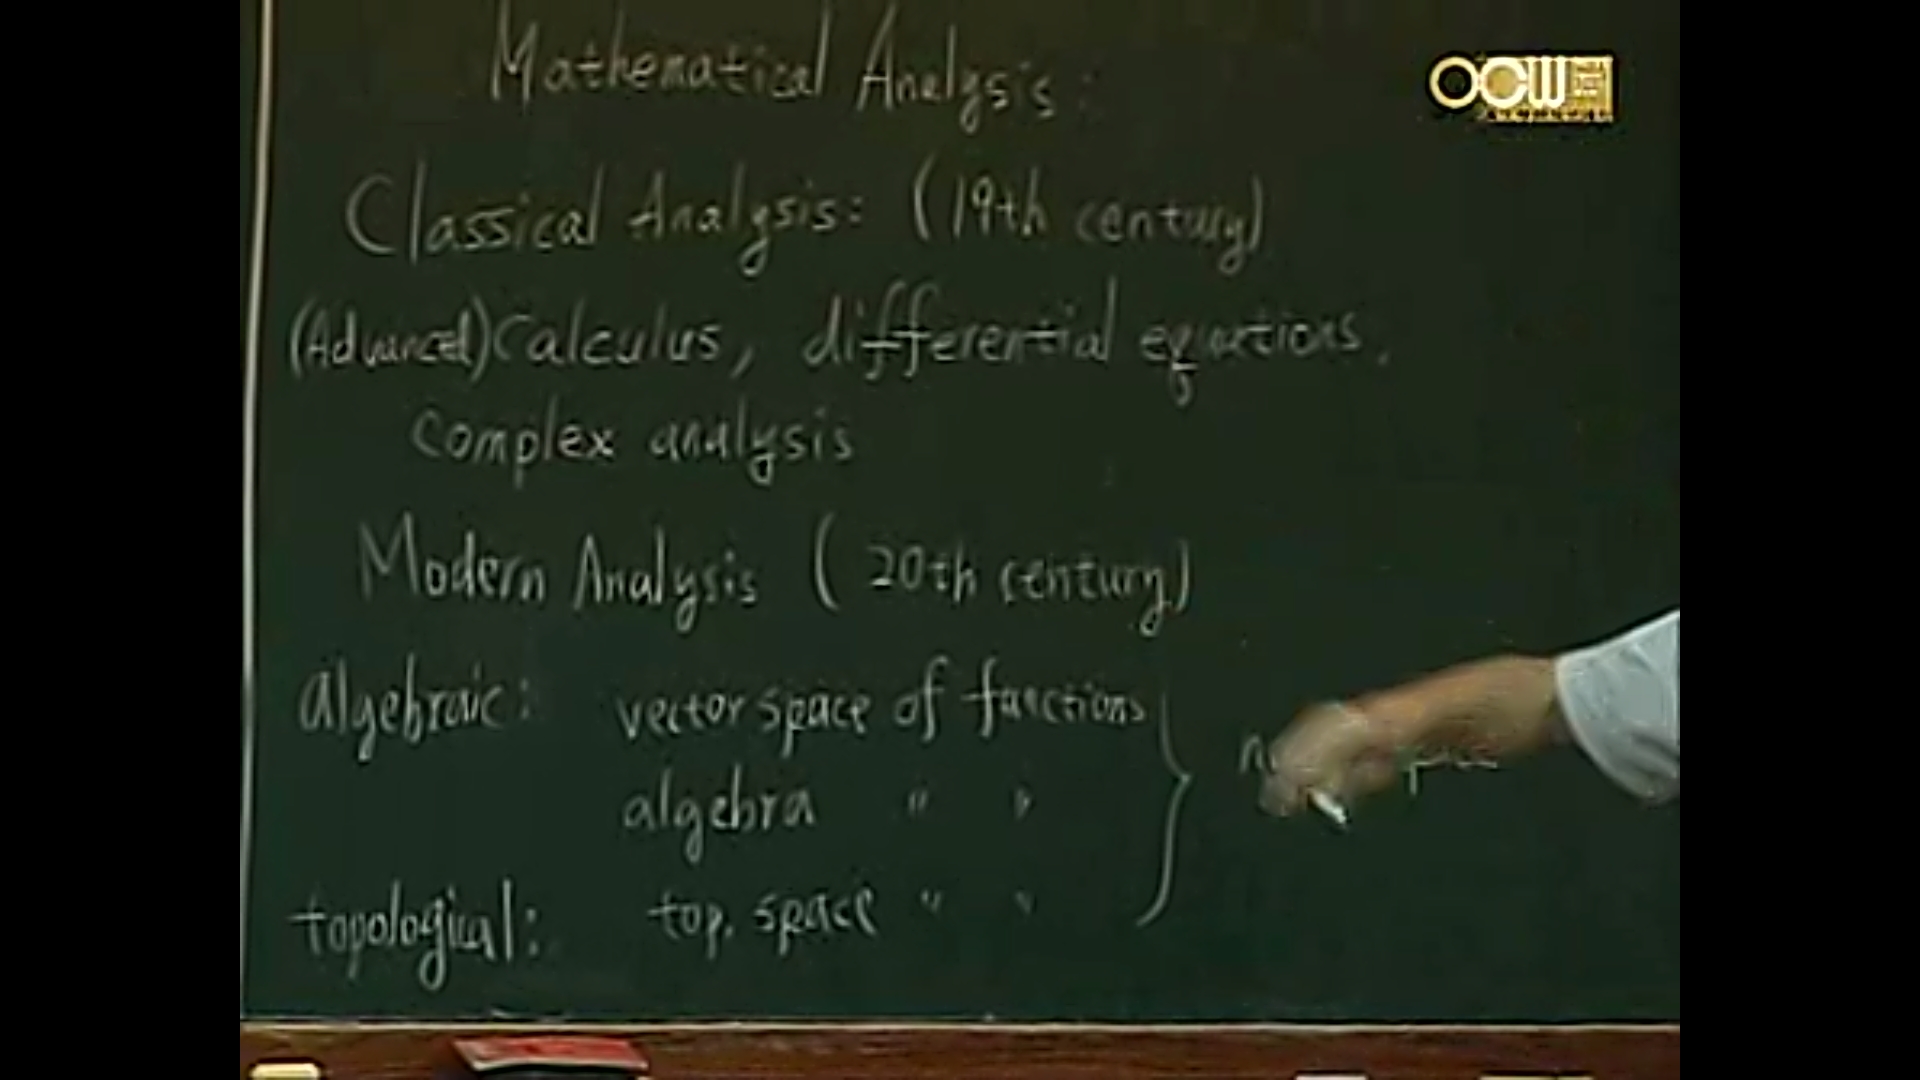 Mathematical Analysis:
OCW
Classical Analysis: (19th century)
(Advanced) Calculus, differential equations,
complex analysis
Modern Analysis (20th century)
algebraic: vector space of functions
algebra " "
topological: top. space " "